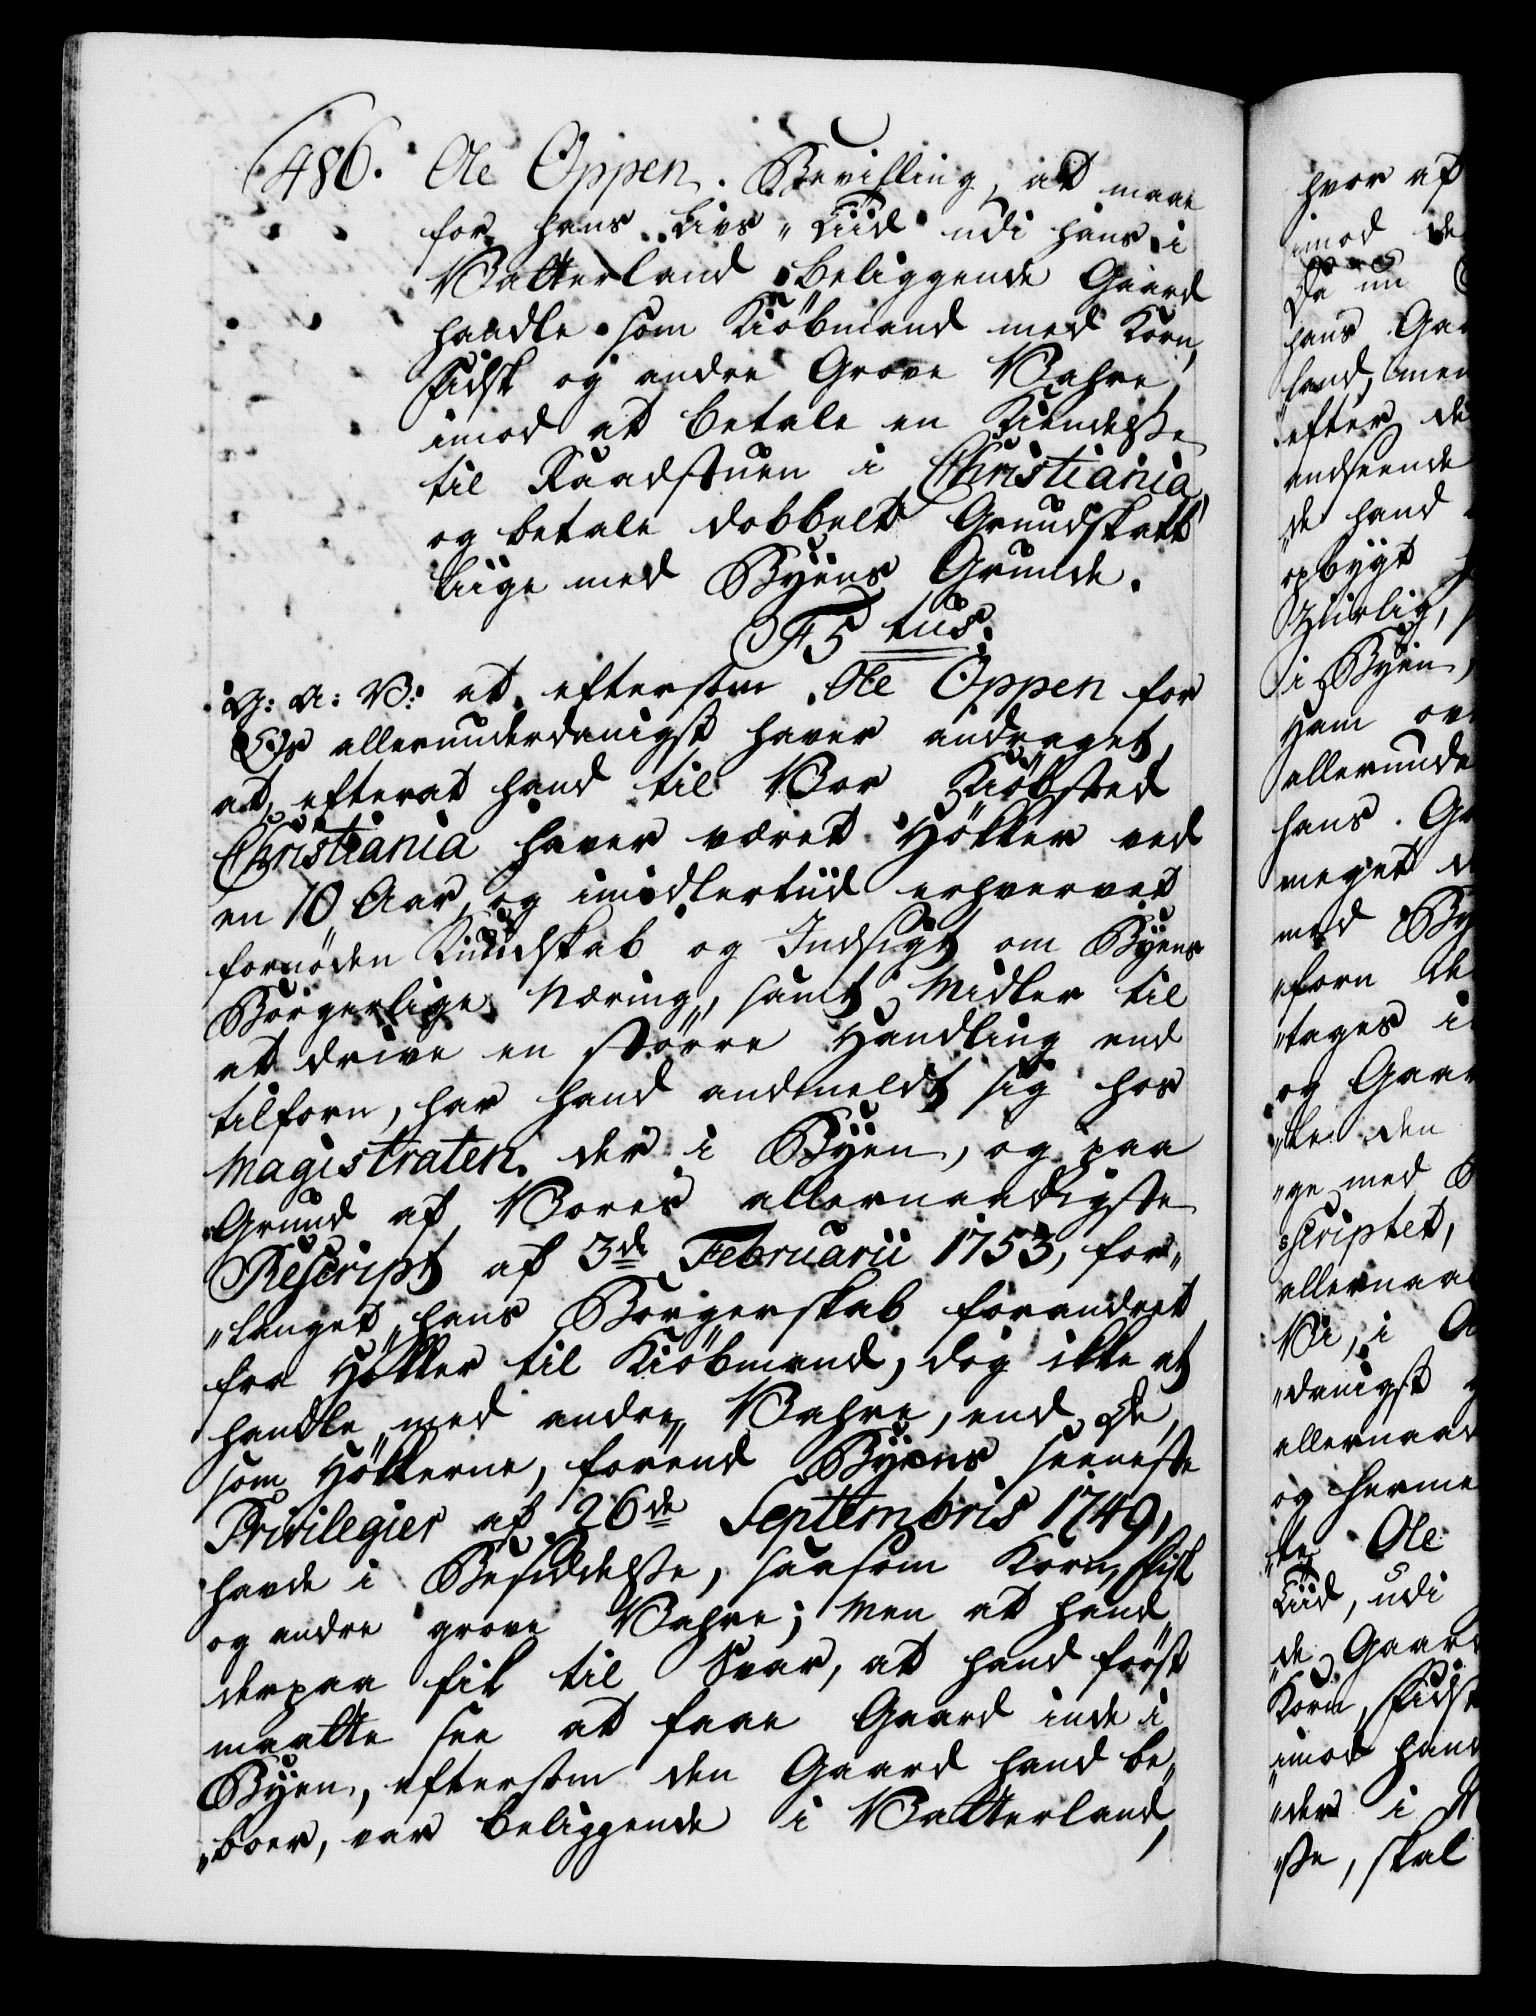 486. Ole Oppen. Bevilling, at maae
for hans Livs-Tiid udi hans i
Vatterland beliggende Gaard
handle som Kiöbmand med Korn,
Fidsk og andre Grove Vahre,
imod at betale en Kiendelsse
til Raadstuen i Christiania,
og betale dobbelt Grundskatt
liige med Byens Grunde.
F5tus.
G: A: V: at eftersom Ole Oppen for
Os allerunderdanigst haver andraget,
at, efterat hand til Vor Kiöbsted
Christiania haver været Höker ved
en 10 Aar, og imidlertiid erhvervet
fornöden Kundskab og Indsigt om Byens
Borgerlige Næring, samt Midler til
at drive en större Handling end
tilforn, har hand andmeldt sig hos
Magistraten der i Byen, og paa
Grund af Vores allernaadigste
Rescript af 3de Februarii 1753, for-
„langet hans Borgerskab forandret
fra Höker til Kiöbmand, dog ikke at
handle med andre Vahre, end de,
som Hökerne, forend Byens seeneste
Privilegier af 26de Septembris 1749,
havde i Besiddelsse, saasom Korn, Fisk
og andre grove Vahre; Men at hand
derpaa fik til Svar, at hand först
maatte see at faae Gaard inde i
Byen, eftersom den Gaard hand be-
„boer, var beliggende i Vatterland,
hvor af
imod de
Da nu
hans Gaa
hand, men
efter de
andseende
„de hand
opbygt
Ziirlig,
i Byen,
ham ov
allerunde
hans Ga
meget d
med By
„forn de
„tages i
og Gaar
„le den
„ge med B
scriptet,
allernaa
Vi, i A
„danigst
allernaad
og herme
„te Ole
Tiid, udi
„de Gaar
Korn, Fidsk
imod hand
„der i M
„sse, skal